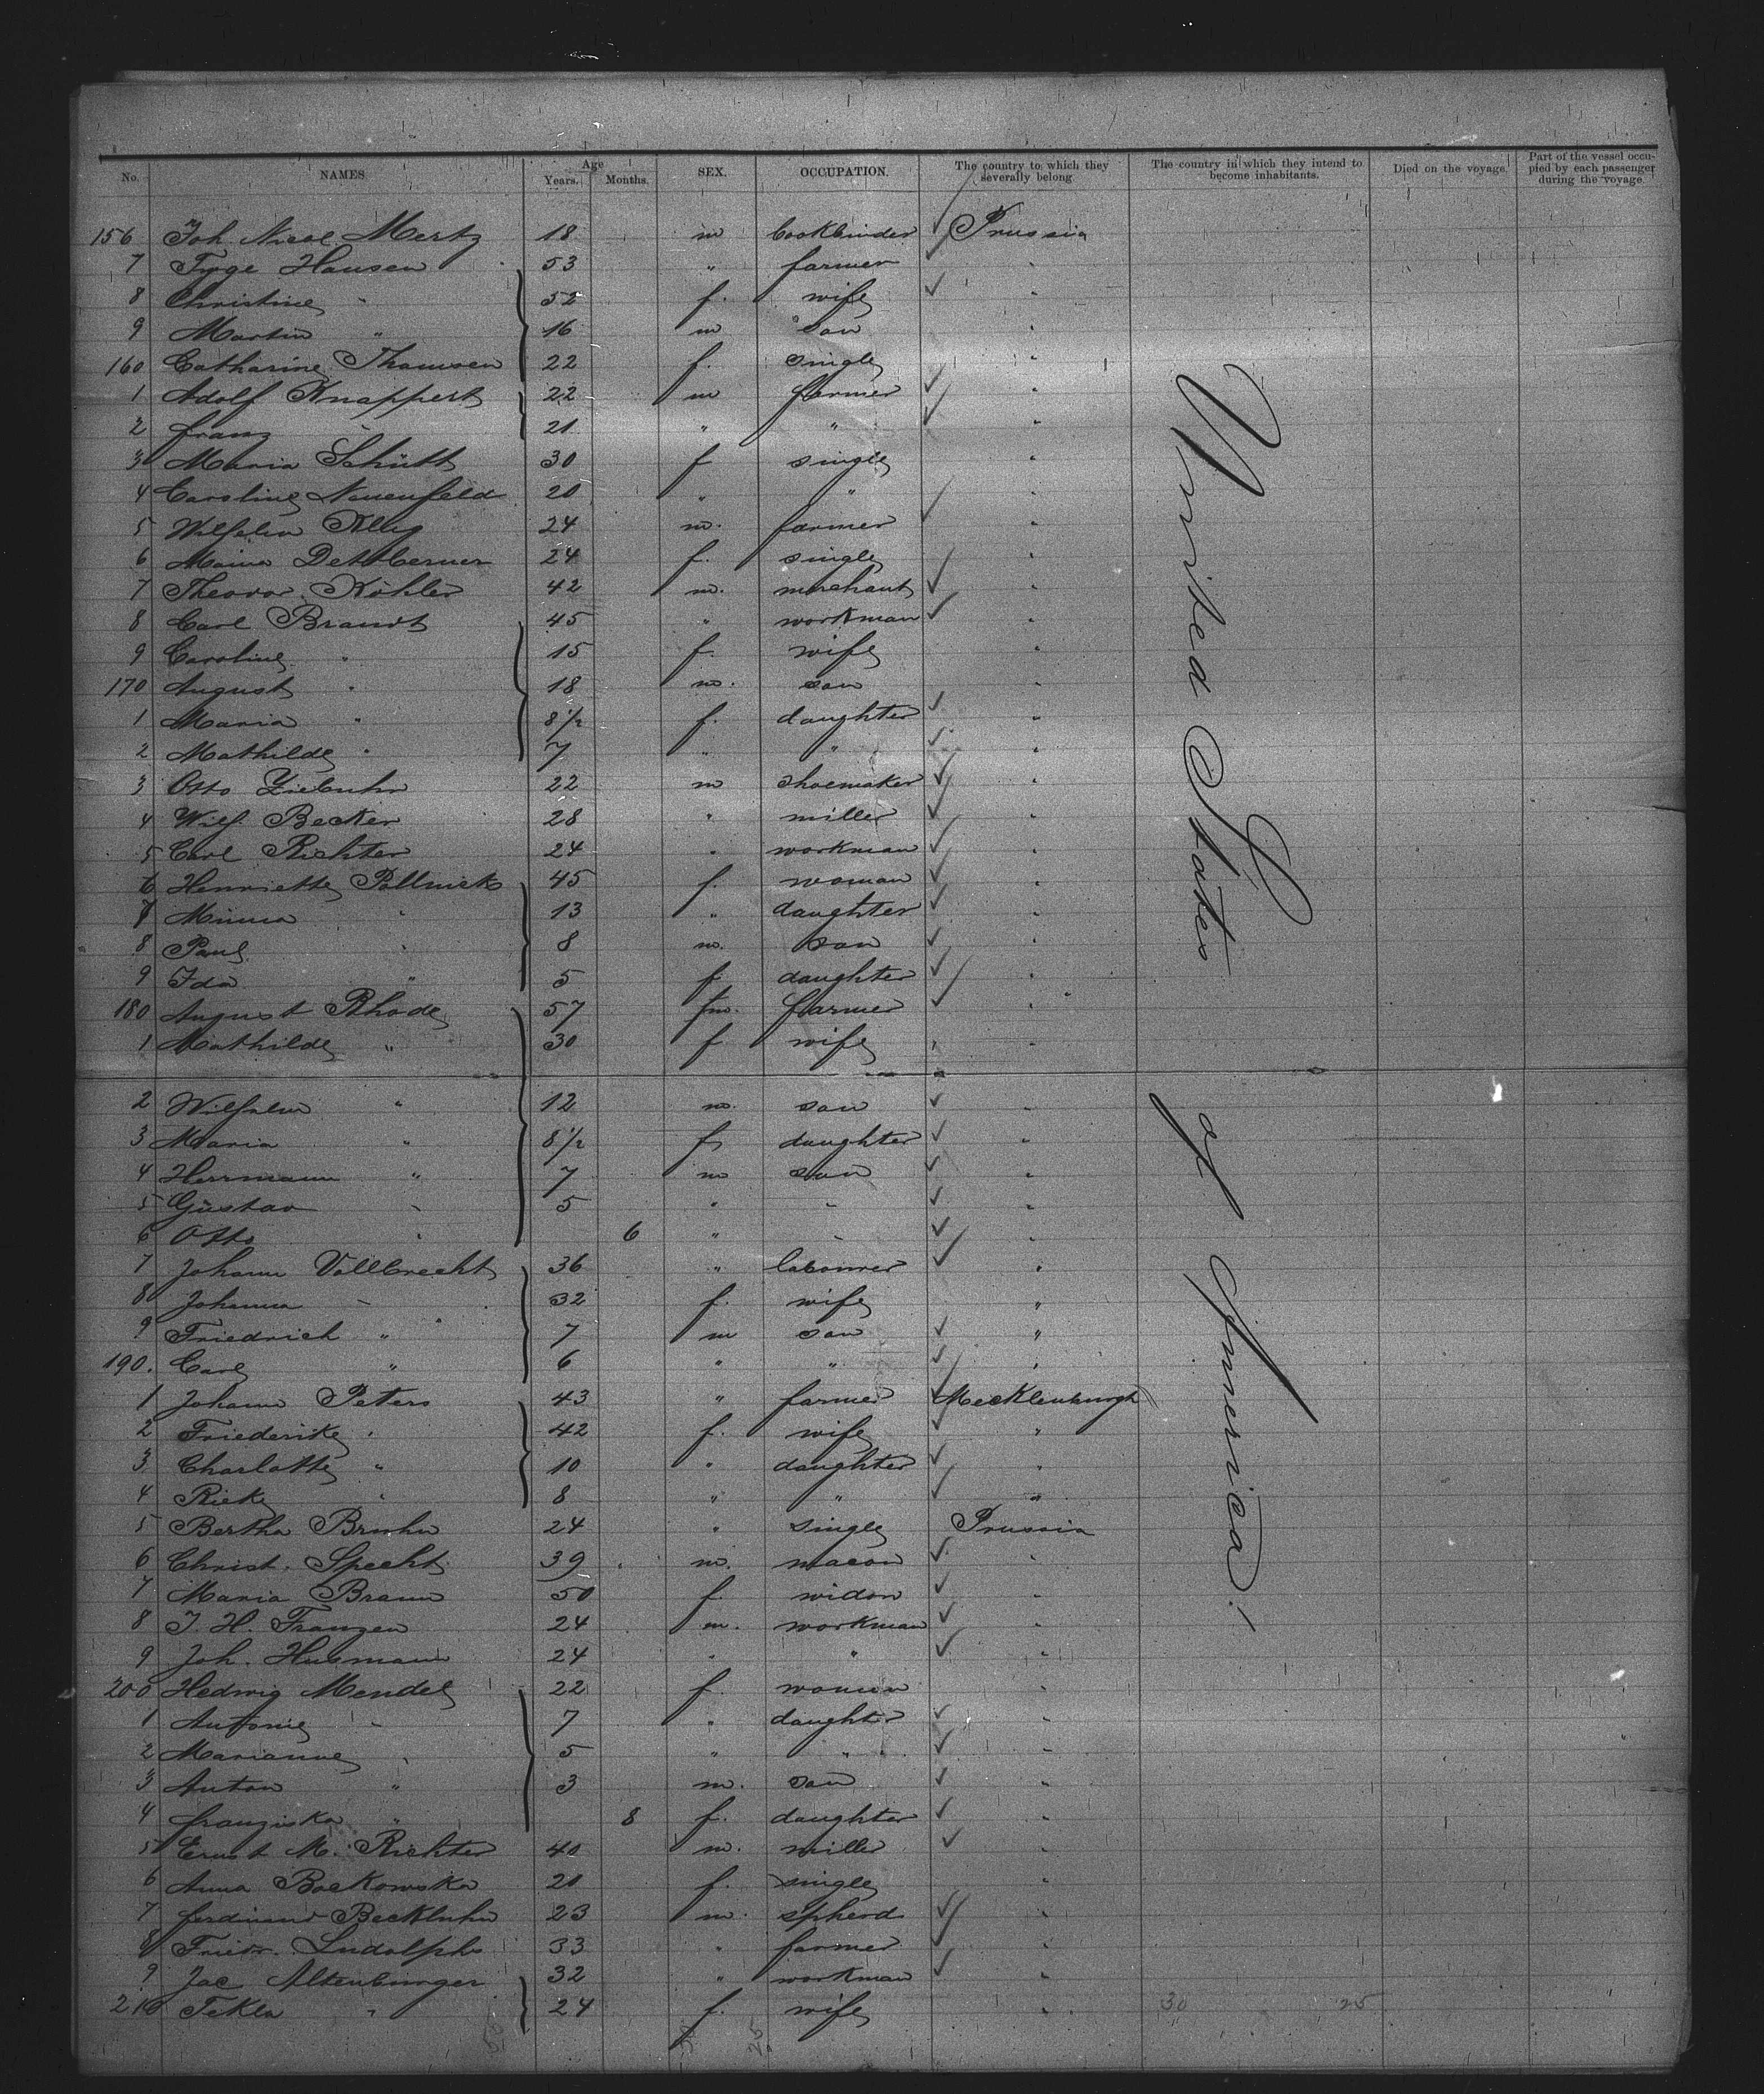 No. NAMES Age Years. Months. SEX. OCCUPATION. The country to which they severally belong. The country in which they intend to become inhabitants. Died on the voyage. Part of the vessel occupied by each passenger during the voyage.
156 Joh. Nicol Mertz 18 m bookbinder Prussia
7 Tyge Hansen 53 " farmer "
8 Christine " 52 f. wife "
9 Martin " 16 m son "
160 Catharine Thomsen 22 f. single "
1 Adolf Knappert 22 m farmer "
2 Franz " 21 " " "
3 Maria Schütt 30 f single "
4 Caroline Nauenfeld 20 " " "
5 Wilhelm 24 m. farmer "
6 24 f. single "
7 Theodor Köhler 42 m. merchant "
8 Carl Brandt 45 " workman "
9 Caroline " 15 f. wife "
170 August " 18 m. son "
1 Maria " 8½ f. daughter "
2 Mathilde " 7 " " "
3 Otto Ziebuhr 22 m shoemaker "
4 Wilh. Becker 28 " miller "
5 Carl Richter 24 " workman "
6 Henriette Pollnick 45 f. woman "
7 Minna " 13 " daughter "
8 Paul " 8 m. son "
9 Ida " 5 f daughter "
180 August Rhode 57 m. farmer "
1 Mathilde " 30 f wife "
2 Wilhelm " 12 m. son "
3 Maria " 8½ f daughter "
4 Herrmann " 7 m son "
5 Gustav " 5 " " "
6 Otto " 6 " " "
7 Johann Vollbrecht 36 " labourer "
8 Johanna " 32 f. wife "
9 Friedrich " 7 m son "
190. Carl " 6 " " "
1 Johann Peters 43 " farmer Mecklenburgh
2 Friederike " 42 f. wife "
3 Charlotte " 10 " daughter "
4 Rieke " 8 " " "
5 Bertha Bruhn 24 " single Prussia
6 Christ. Specht 39 m. mason "
7 Maria Braun 50 f. widow "
8 J. H. Franzen 24 m. workman "
9 Joh. Husmann 24 " " "
200 Hedwig Mendel 22 f. woman "
1 Antonie " 7 " daughter "
2 Marianne " 5 " " "
3 Anton " 3 m. son "
4 Franziska " 8 f. daughter "
5 Ernst M. Richter 40 m. miller "
6 Anna Backowska 20 f. single "
7 Ferdinand Beckluhn 23 m. spherd "
8 Friedr. Ludolph 33 " farmer "
9 Jac Altenburger 32 " workman "
210 Tekla " 24 f. wife " 30 25
United States of America!